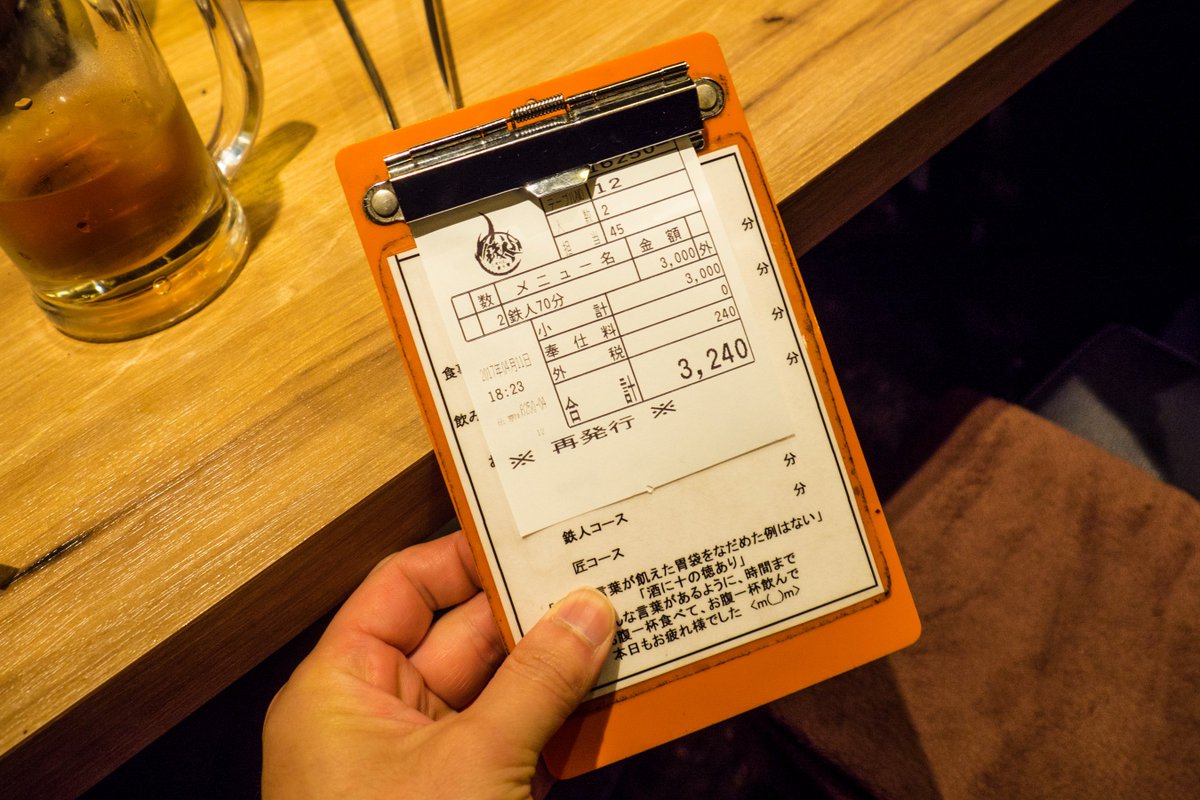 16250
テーブルNo 12
人数 2
担当 45
鉄人
数 メニュー名 金額
2 鉄人70分 3,000外
小計 3,000
奉仕料 0
外税 240
合計 3,240
2017年04月11日
18:23
※ 再発行 ※
分
分
分
分
食
飲み
お
分
分
鉄人コース
匠コース
言葉が飢えた胃袋をなだめた例はない」
「酒に十の徳あり」
んな言葉があるように、時間まで
腹一杯食べて、お腹一杯飲んで
本日もお疲れ様でした <m(_)m>